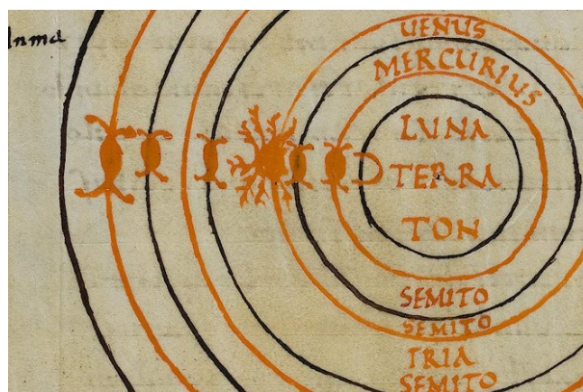 UENUS
MERCURIUS
LUNA
TERRA
TON
SEMITO
SEMITO
TRIA
SEMITO